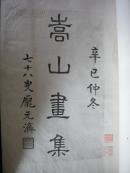 辛巳仲冬
嵩山畫集
七十八叟龐元濟